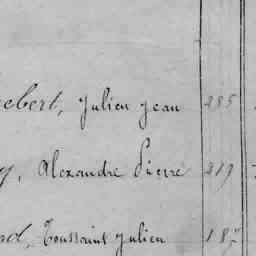 ebert, Julien Jean 285
y, Alexandre Pierre 219
Toussaint Julien 187